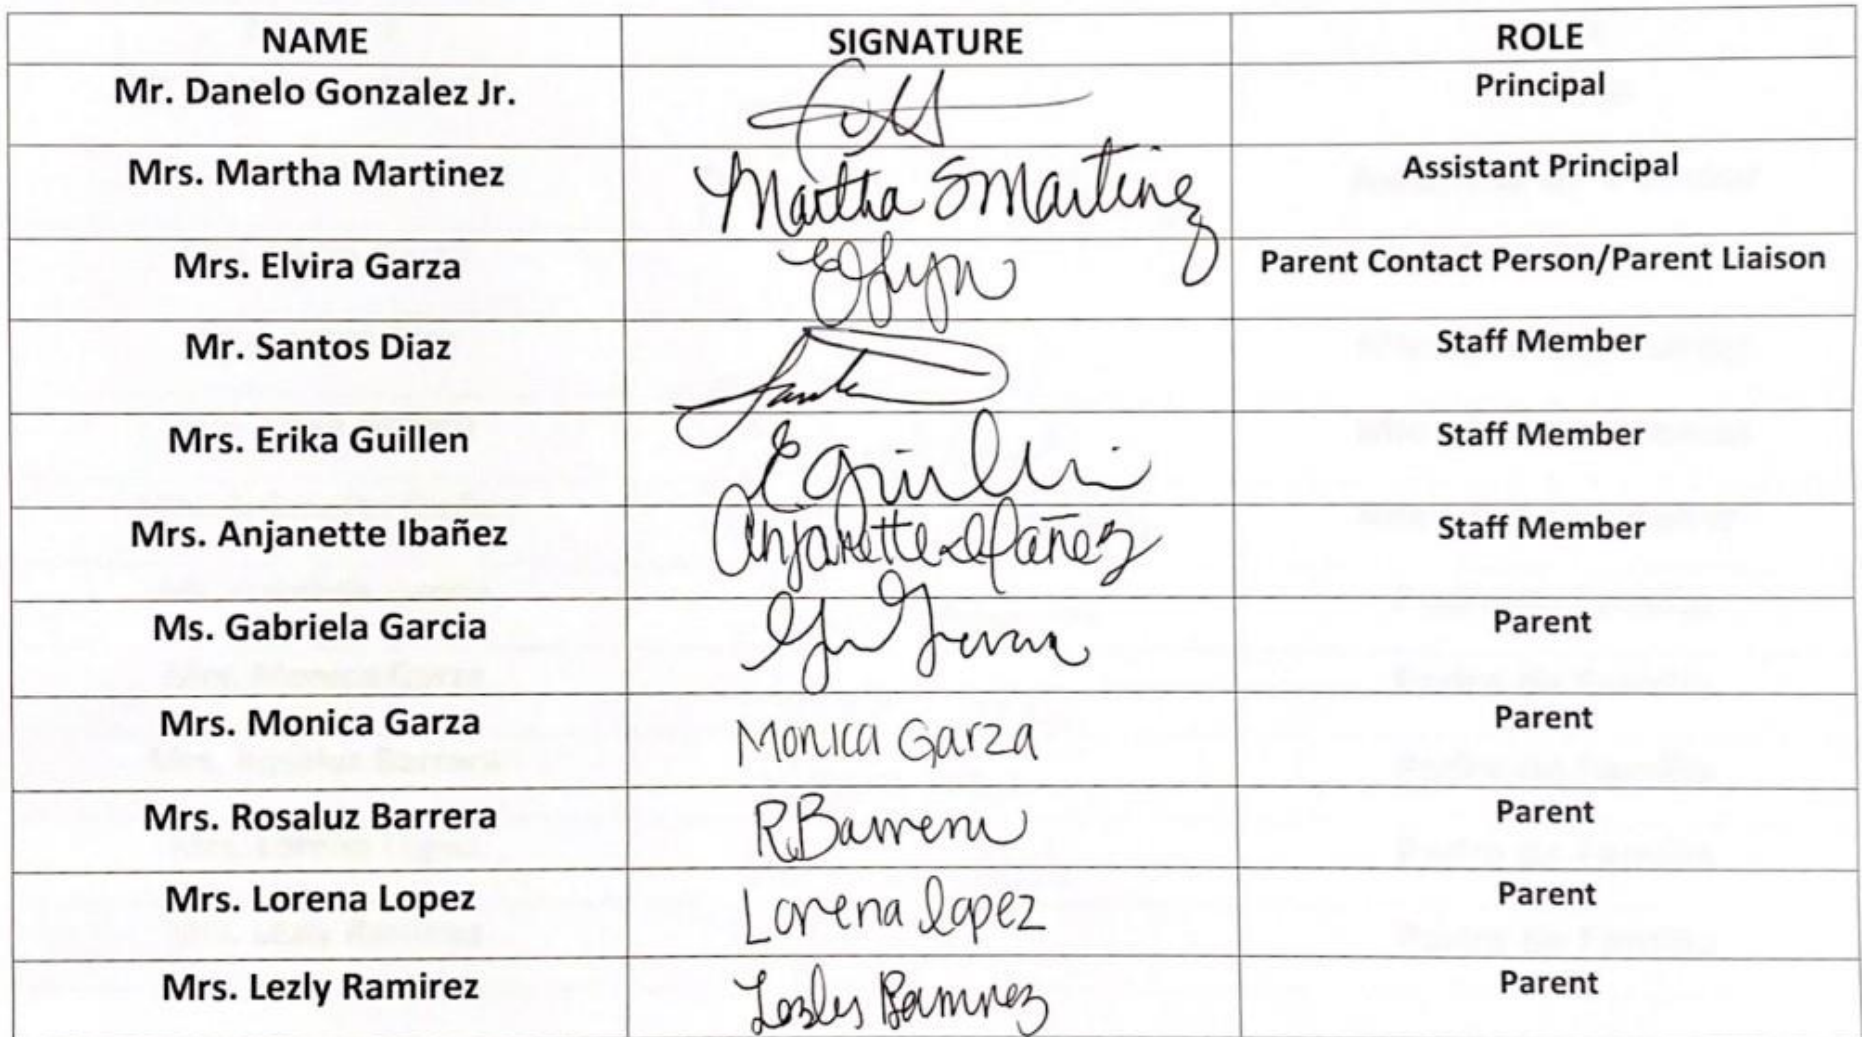 NAME SIGNATURE ROLE
Mr. Danelo Gonzalez Jr. Principal
Mrs. Martha Martinez Martha S Martinez Assistant Principal
Mrs. Elvira Garza Parent Contact Person/Parent Liaison
Mr. Santos Diaz Staff Member
Mrs. Erika Guillen Staff Member
Mrs. Anjanette Ibañez Anjanette Ibañez Staff Member
Ms. Gabriela Garcia Parent
Mrs. Monica Garza Monica Garza Parent
Mrs. Rosaluz Barrera R Barrera Parent
Mrs. Lorena Lopez Lorena Lopez Parent
Mrs. Lezly Ramirez Lezly Ramirez Parent